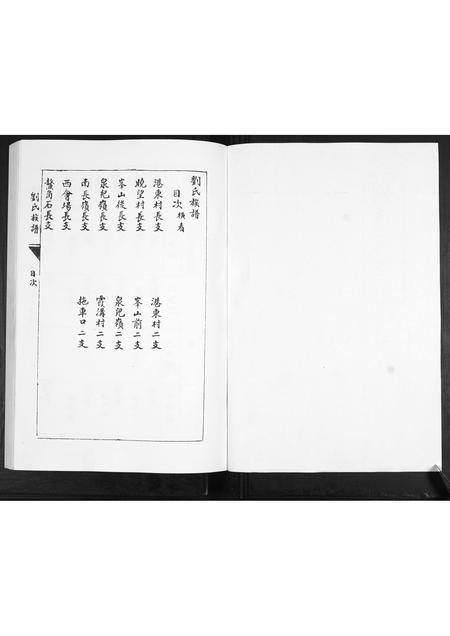 劉氏族譜
目次 橫看
港東村長支
曉望村長支
峯山後長支
泉兒嶺長支
南長嶺長支
西會場長支
鰲角石長支
港東村二支
峯山前二支
泉兒嶺二支
霞溝村二支
拖車口二支
劉氏族譜
目次